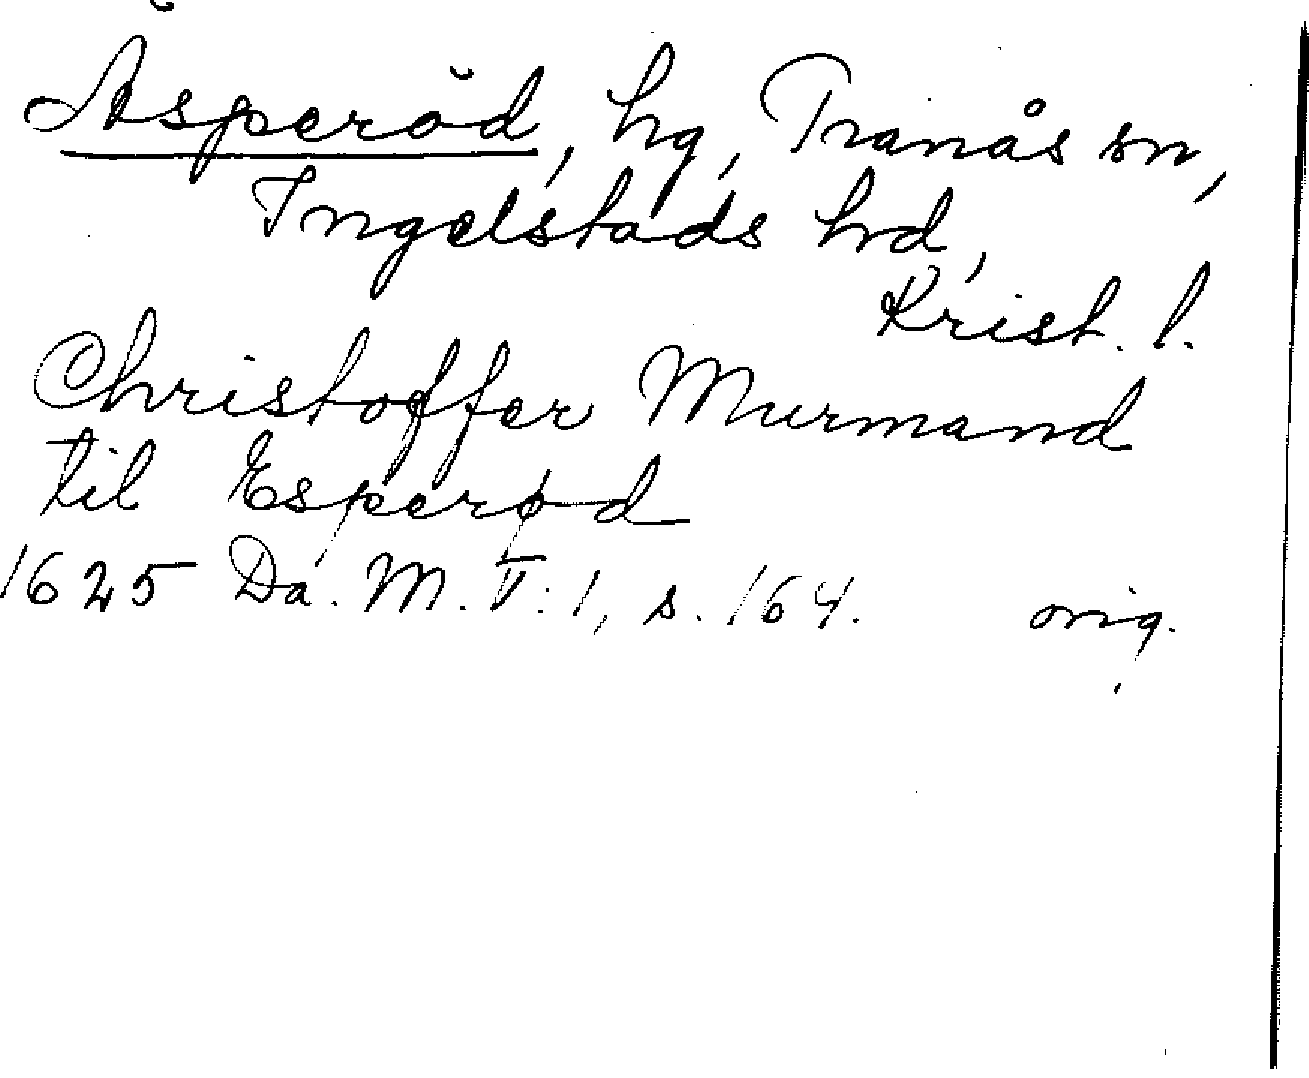 Äsperöd, hg, Tranås sn,
Ingelstads hd,
Krist. l.
Christoffer Murmand
til Esperød
1625 Da. M. V: 1, s. 164. orig.